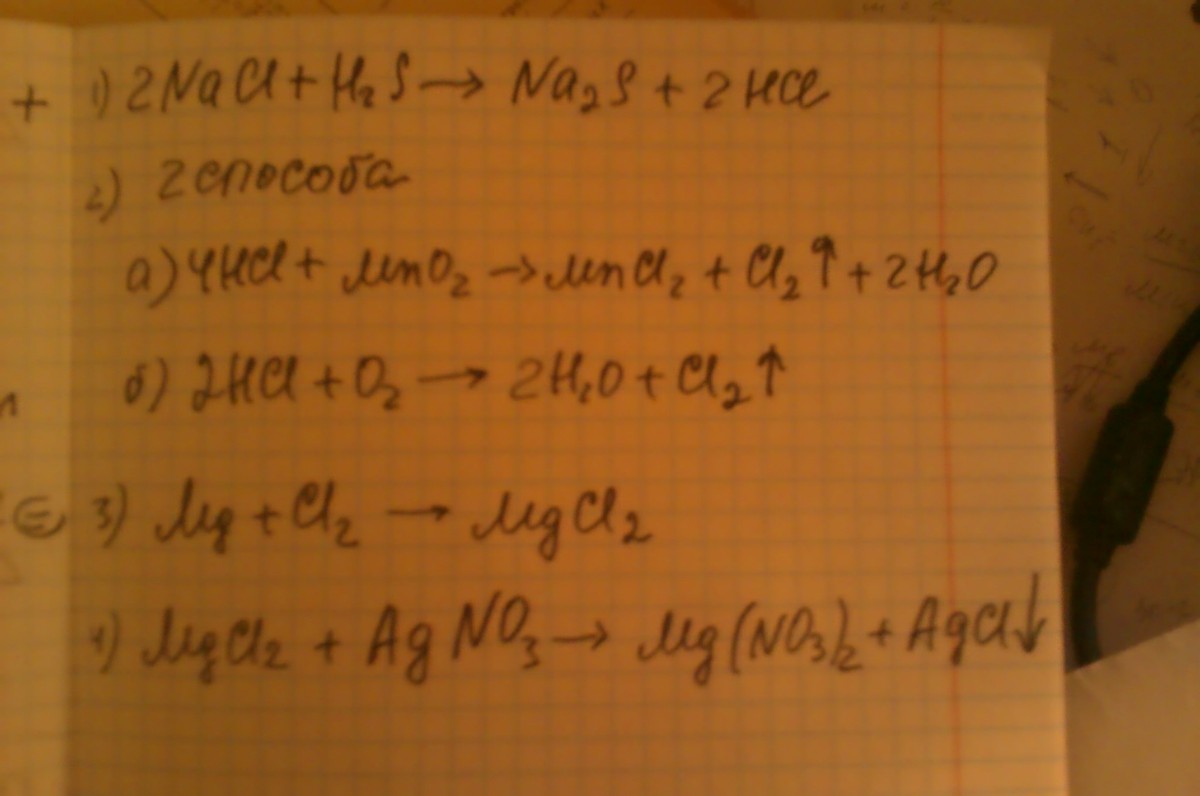 + 1) 2NaCl + H₂S → Na₂S + 2HCl
2) 2 способа
а) 4HCl + MnO₂ → MnCl₂ + Cl₂↑ + 2H₂O
б) 2HCl + O₂ → 2H₂O + Cl₂↑
3) Mg + Cl₂ → MgCl₂
4) MgCl₂ + AgNO₃ → Mg(NO₃)₂ + AgCl↓